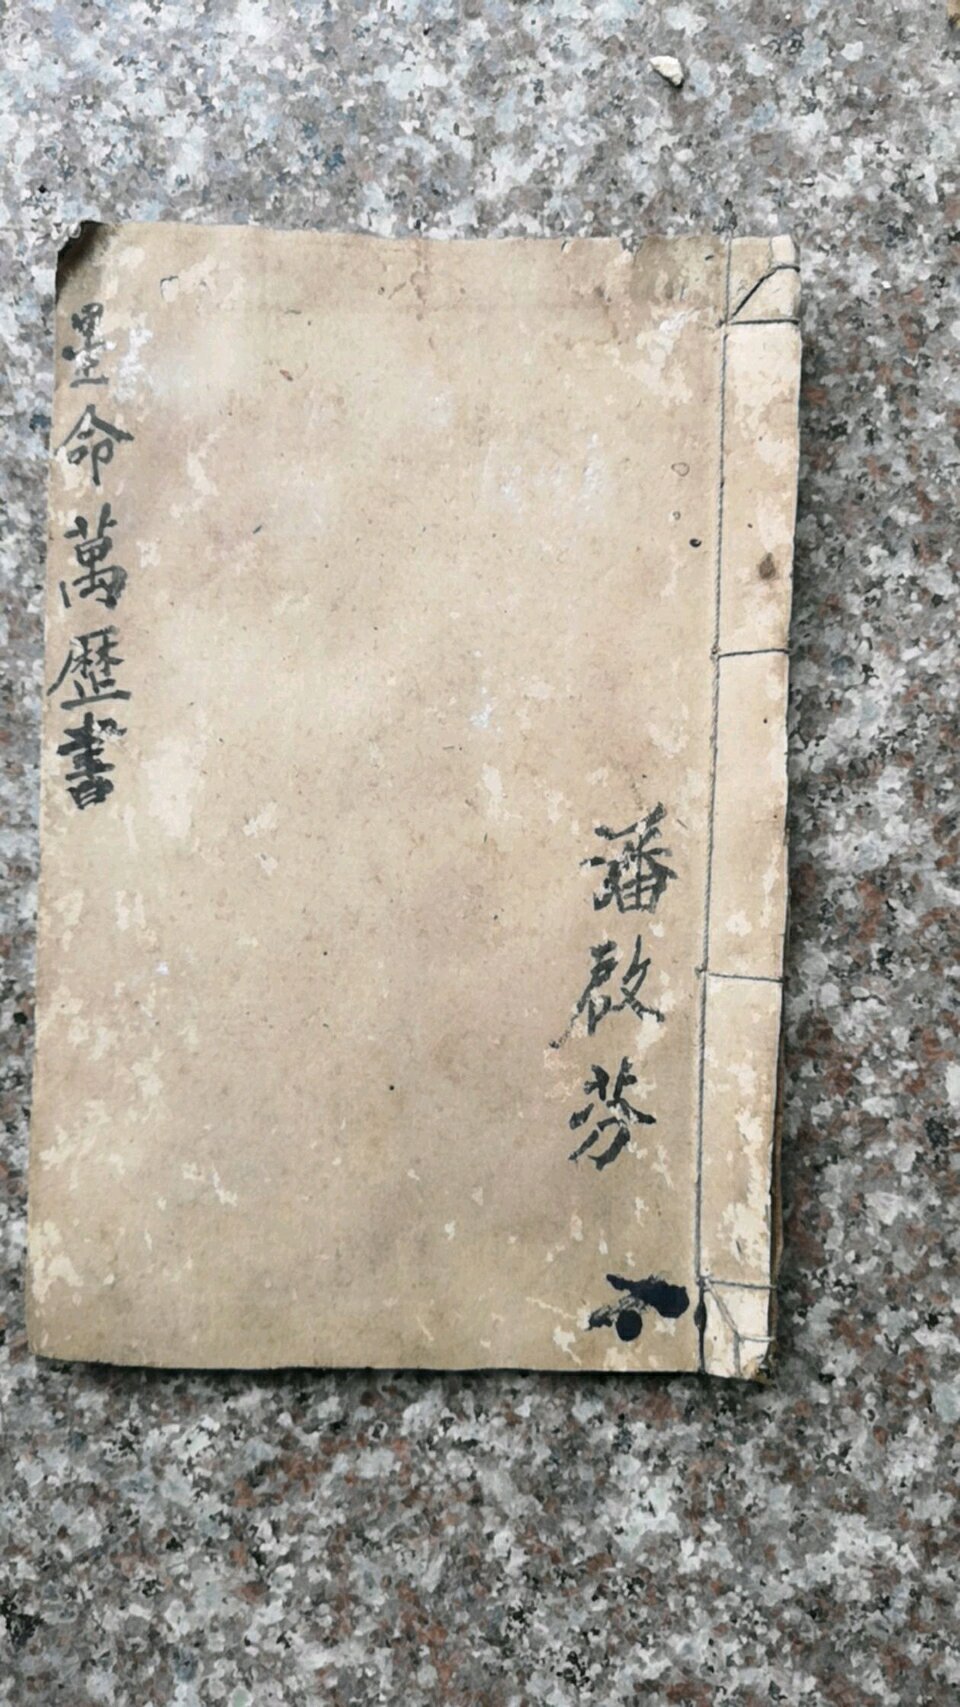 潘啟芬
星命萬歷書